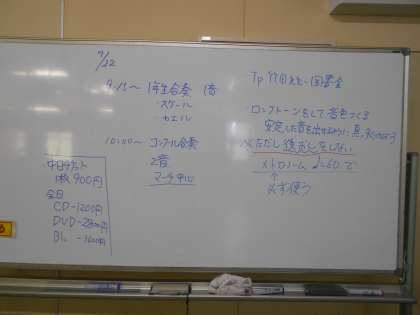 7/12
9:15～ 1年生合奏 1音
・スケール
・カエル
10:00～ コンクール合奏
2音
マーチ中心
中日チケット
1枚 900円
全日
CD-1200円
DVD-2800円
BL -3600円
Tp 竹田先生
・ロングトーンをして音色をつくる
安定した音を出せるように
※ただし後おしをしない
メトロノーム ♩=60で
↑
必ず使う